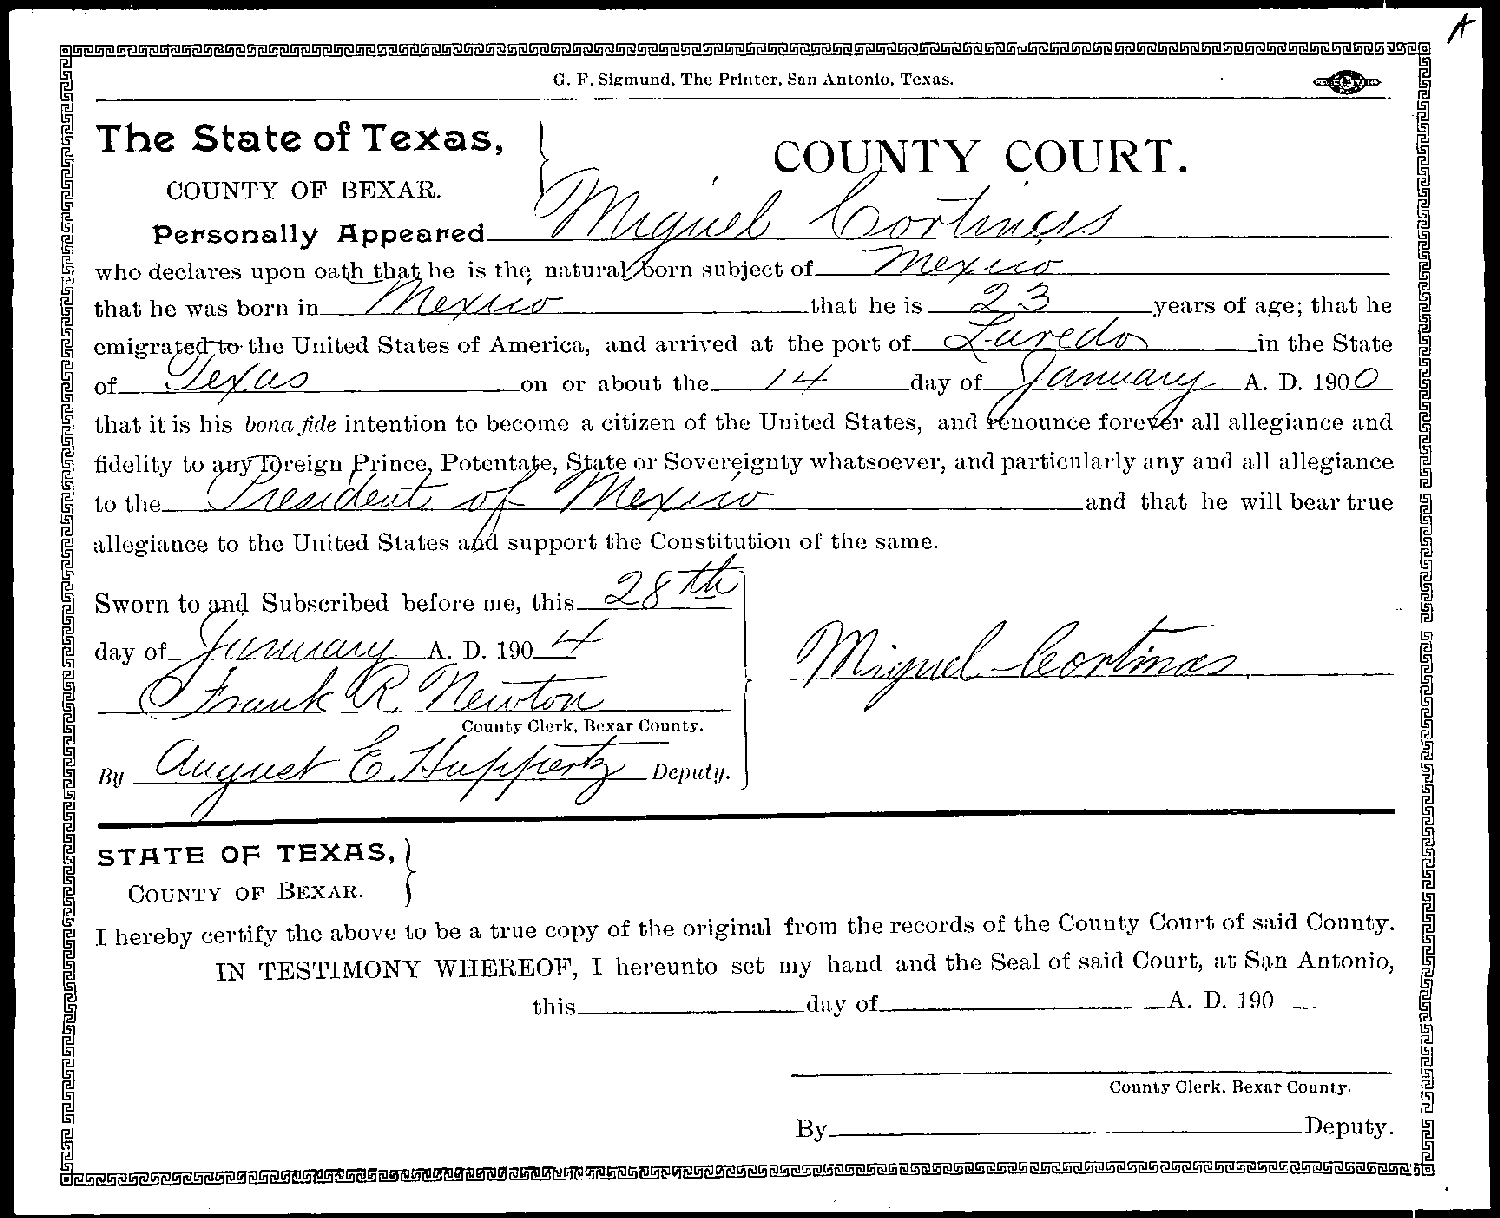 A
G. F. Sigmund, The Printer, San Antonio, Texas.
The State of Texas,
COUNTY OF BEXAR.
COUNTY COURT.
Personally Appeared Miguel Cortinas
who declares upon oath that he is the natural born subject of Mexico
that he was born in Mexico that he is 23 years of age; that he
emigrated to the United States of America, and arrived at the port of Laredo in the State
of Texas on or about the 14 day of January A. D. 1900
that it is his bona fide intention to become a citizen of the United States, and renounce forever all allegiance and
fidelity to any foreign Prince, Potentate, State or Sovereignty whatsoever, and particularly any and all allegiance
to the President of Mexico and that he will bear true
allegiance to the United States and support the Constitution of the same.
Sworn to and Subscribed before me, this 28th
day of January A. D. 1904
Miguel Cortinas
Frank R. Newton
County Clerk, Bexar County.
By August E. Huppertz Deputy.
STATE OF TEXAS,
COUNTY OF BEXAR.
I hereby certify the above to be a true copy of the original from the records of the County Court of said County.
IN TESTIMONY WHEREOF, I hereunto set my hand and the Seal of said Court, at San Antonio,
this day of A. D. 190
County Clerk, Bexar County.
By Deputy.